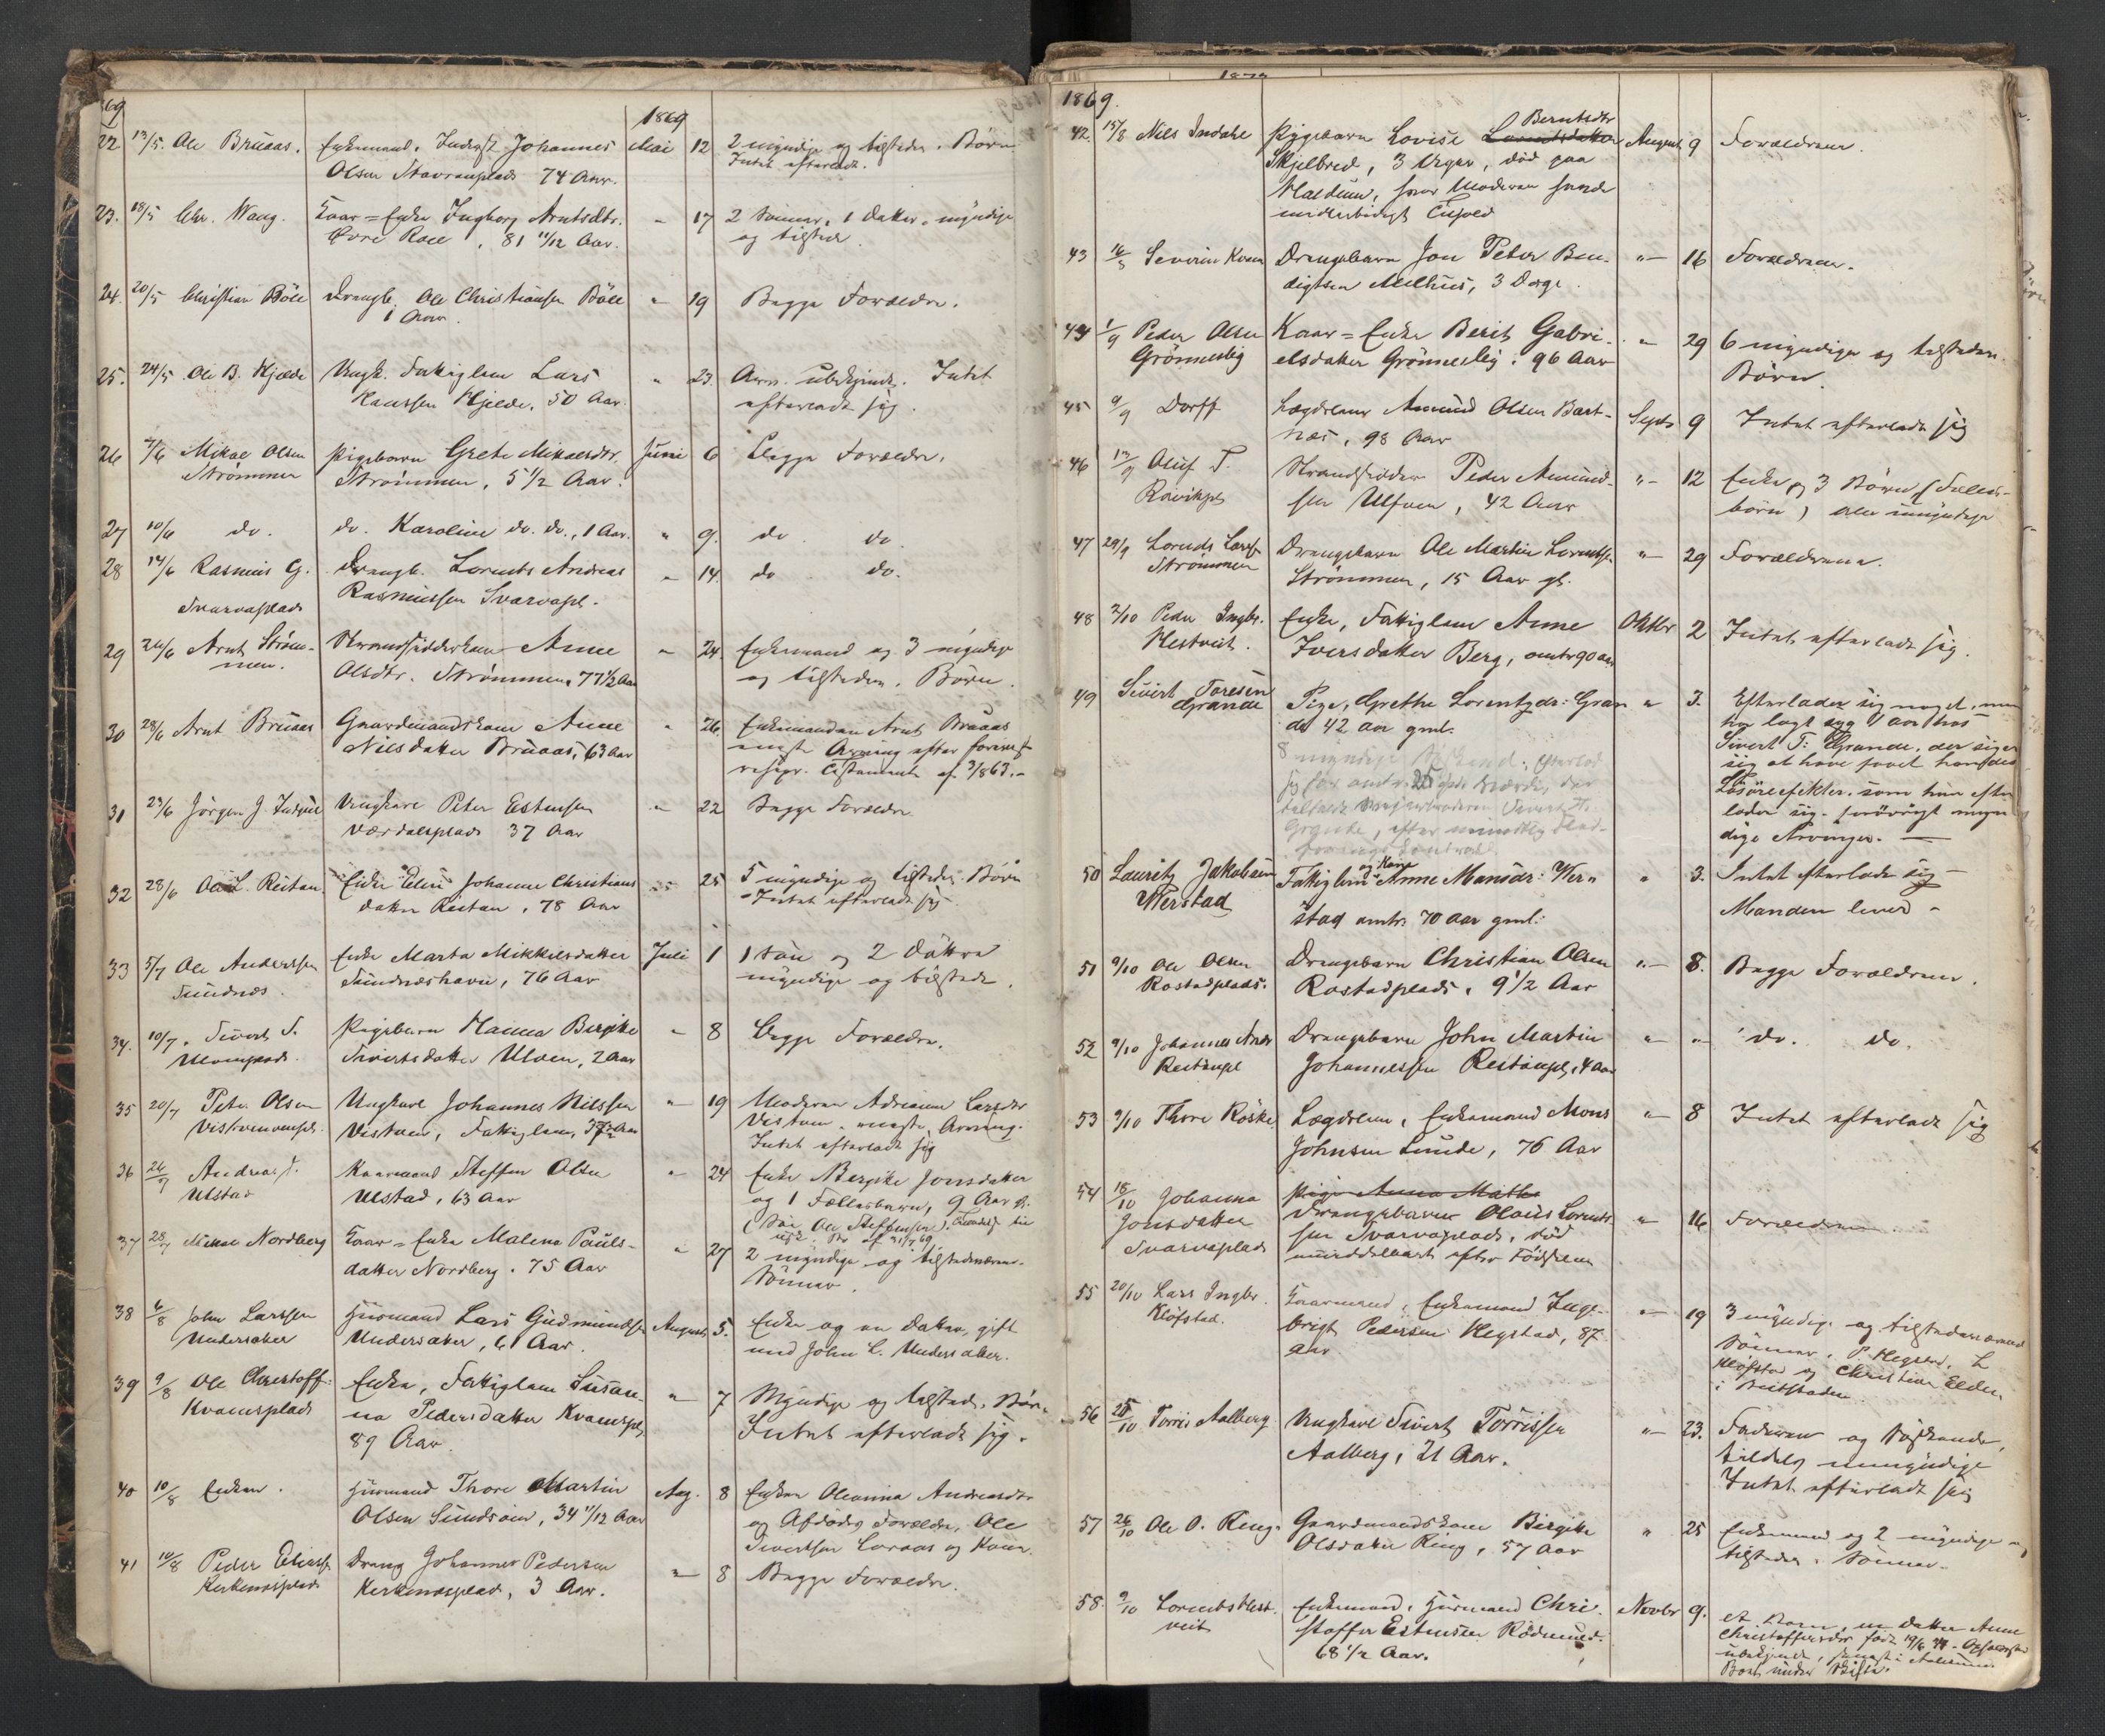 69
1869
22 13/5. Ole Bruaas. Enkemand, Inderst Johannes Mai 12 2 myndige og tilstedev. Børn
Olsen Stavranplads 74 Aar. Intet efterladt.
23. 18/5 Chr. Wang. Kaar=Enke Ingborg Arntsdtr. - 17 2 Sønner, 1 Datter, myndige
Øvre Roel, 81 11/12 Aar. og tilstede
24. 20/5 Christian Böle Drengb. Ole Christiansen Böle - 19 Begge Forældre.
1 Aar.
25. 24/5 Ole B. Hjelde Ungk. Fattiglem Lars " 23. Arv. ubekjendt. Intet
Hansen Hjelde, 50 Aar. efterladt sig.
26 7/6 Mikal Olsen Pigebarn Grete Mikalsdtr. Juni 6 Begge Forældre.
Strømmen Strømmen, 5 1/2 Aar.
27 10/6 do. do. Karoline do. do., 1 Aar. " 9. do do
28 14/6 Rasmus G. Drengb. Lorents Andreas - 14. do do.
Svarvaplads Rasmussen Svarvapl.
29 26/6 Arnt Strøm- Strandsidderkone Anne - 24. Enkemand og 3 myndige
men. Olsdtr. Strømmen, 77 1/2 Aar og tilstedev. Børn.
30 28/6 Arnt Bruaas Gaardmandskone Anne " 26. Enkemanden Arnt Bruaas
Nilsdatter Bruaas, 63 Aar eneste Arving efter forevist
Testamente af 3/8 63.-
31 23/6 Jörgen J. Ungkarl Peter Estensen " 22 Begge Forældre.
Værdalsplads 37 Aar
32 28/6 Ole L. Reitan Enke Elen Johanna Christians- 25 5 myndige og tilstedev. Børn
datter Reitan, 78 Aar - Intet efterladt sig.
33 5/7 Ole Anderssen Enke Marta Mikkelsdatter Juli 1 1 Søn og 2 Døttre
Sundnæs. Sundnæshavn, 76 Aar myndige og tilstede.
34. 10/7. Sivert S. Pigebarn Hanna Bergitte - 8 Begge Forældre.
Ulvenplads. Sivertsdatter Ulven, 2 Aar
35 20/7 Peter Olsen Ungkarl Johannes Nilssen - 19 Moderen Adrianna Larsdtr
Vistvenpls. Vistven, Fattiglem, 37 Aar Vistven, eneste Arving.
Intet efterladt sig
36 26/7 Andreas S. Kaarmand Steffen Olsen - 24 Enke Bergitte Jonsdatter
Ulstad Ulstad, 63 Aar og 1 Fællesbarn, 9 Aar gl.
(Søn Ole Steffensen).
37 28/7 Mikal Nordberg Kaar=Enke Malena Pauls- " 27 2 myndige og tilstedeværen.
datter Nordberg. 75 Aar Sønner.
38 6/8 John Larssen Husmand Lars Gudmundsen August 5. Enke og en Datter, gift
Undersaker Undersaker, 61 Aar. med John L. Undersaker.
39 9/8 Ole Christoff: Enke, Fattiglem Susan- " 7 Myndige og tilstede. Børn.
Kvamsplads na Pedersdatter Kvamspl. Intet efterladt sig.
89 Aar.
40 10/8 Enken. Husmand Thore Martin Aug. 8 Enken Oleanna Andreasdtr
Olsen Sundsaien, 34 11/12 Aar og Afdødes Forældre, Ole
Sivertsen og Kone.
41 10/8 Peder Eliass. Dreng Johannes Pedersen " 8 Begge Forældre.
Kirknesplads Kirknesplads, 3 Aar.
1870
1869.
42. 15/8 Nils Indahl Pigebarn Lovise Berntsdtr August 9 Forældrene.
Skjelbred, 3 Uger, død paa
Haldum, hvor Moderen havde
midlertidigt Ophold
43 16/8 Severin Kvam Drengebarn Jon Peter Ben- " 16 Forældrene.
digtsen Melhus, 3 Dage.
44 1/9 Peder Olsen Kaar=Enke Berit Gabri- " 29 6 myndige og tilstedev.
Grönneslig elsdatter Grönneslig. 96 Aar Børn.
45 9/9 Dorff Lægdslem Amund Olsen Bart- Septr 9 Intet efterladt sig
næs, 98 Aar
46 13/9 Oluf T. Strandsidder Peder Amund- " 12 Enke og 3 Børn (Fælles-
Ravikpl. sen Ulfven, 42 Aar børn) alle umyndige
47 29/9 Lorents Larss. Drengebarn Ole Martin Lorentss. " 29 Forældrene.
Strömmen Strömmen, 15 Aar gl.
48 2/10 Peder Ingbr. Enke, Fattiglem Anne Oktbr 2 Intet efterladt sig.
Hestveit. Iversdatter Berg, omtr 90 aar
49 Sivert Toresen Pige, Grethe Lorentzdr: Gran " 3. Efterlader sig noget, men
Grande de 42 aar gml. har lagt syg 1 aar hos
Sivert T: Grande, der siger
sig at have faaet hendes
Løsøreefekter, som hun efter
lader sig. forøvrigt myn
dige Arvinger. —
50 Lauritz Jakobsen Fattiglem og Kone Anne Mansdr: Wer= " 3. Intet efterladt sig -
Werstad stad omtr. 70 aar gml: Manden lever -
51 9/10 Ole Olsen Drengebarn Christian Olsen " 8. Begge Forældrene.
Rostadplads. Rostadplads. 9 1/2 Aar
52 9/10 Johannes Andr. Drengebarn John Martin " " do. do.
Reitanpl Johannessen Reitanpl, 4 Aar
53 9/10 Thore Röske Lægdslem, Enkemand Mons " 8 Intet efterladt sig
Johnsen Lunde, 76 Aar
54 18/10 Johanna Pige Anna Mathe
Jonsdatter Drengebarn Olaus Lorent- " 16 Forældrene.
Svarvaplads sen Svarvaplads, død
umiddelbart efter Fødselen
55 20/10 Lars Ingbr. Kaarmand, Enkemand Inge- " 19 3 myndige og tilstedeværend
Kløfstad. brigt Pedersen Hegstad, 87 Sønner, P. Hegstad, L
Aar. Kløfstad og Christian Elden
i Beitstaden
56 25/10 Torris Aalberg Ungkarl Sivert Torrissen " 23. Faderen og Søskende,
Aalberg, 21 Aar. tildels umyndige
Intet efterladt sig
57 26/10 Ole O. Ring. Gaardmandskone Birgitte " 25 Enkemand og 2 myndige og
Olsdatter Ring, 57 Aar tilstedev. Sønner.
58. 9/10 Lorents Hest- Enkemand, Husmand Chri- Novbr 9. et Barn, en Datter Anne
veit stoffer Estensen Rödmund. Christoffersdtr født 19/6 44 - Opholdssted
68 1/2 Aar. ubekjendt,
Boet under Skifte.